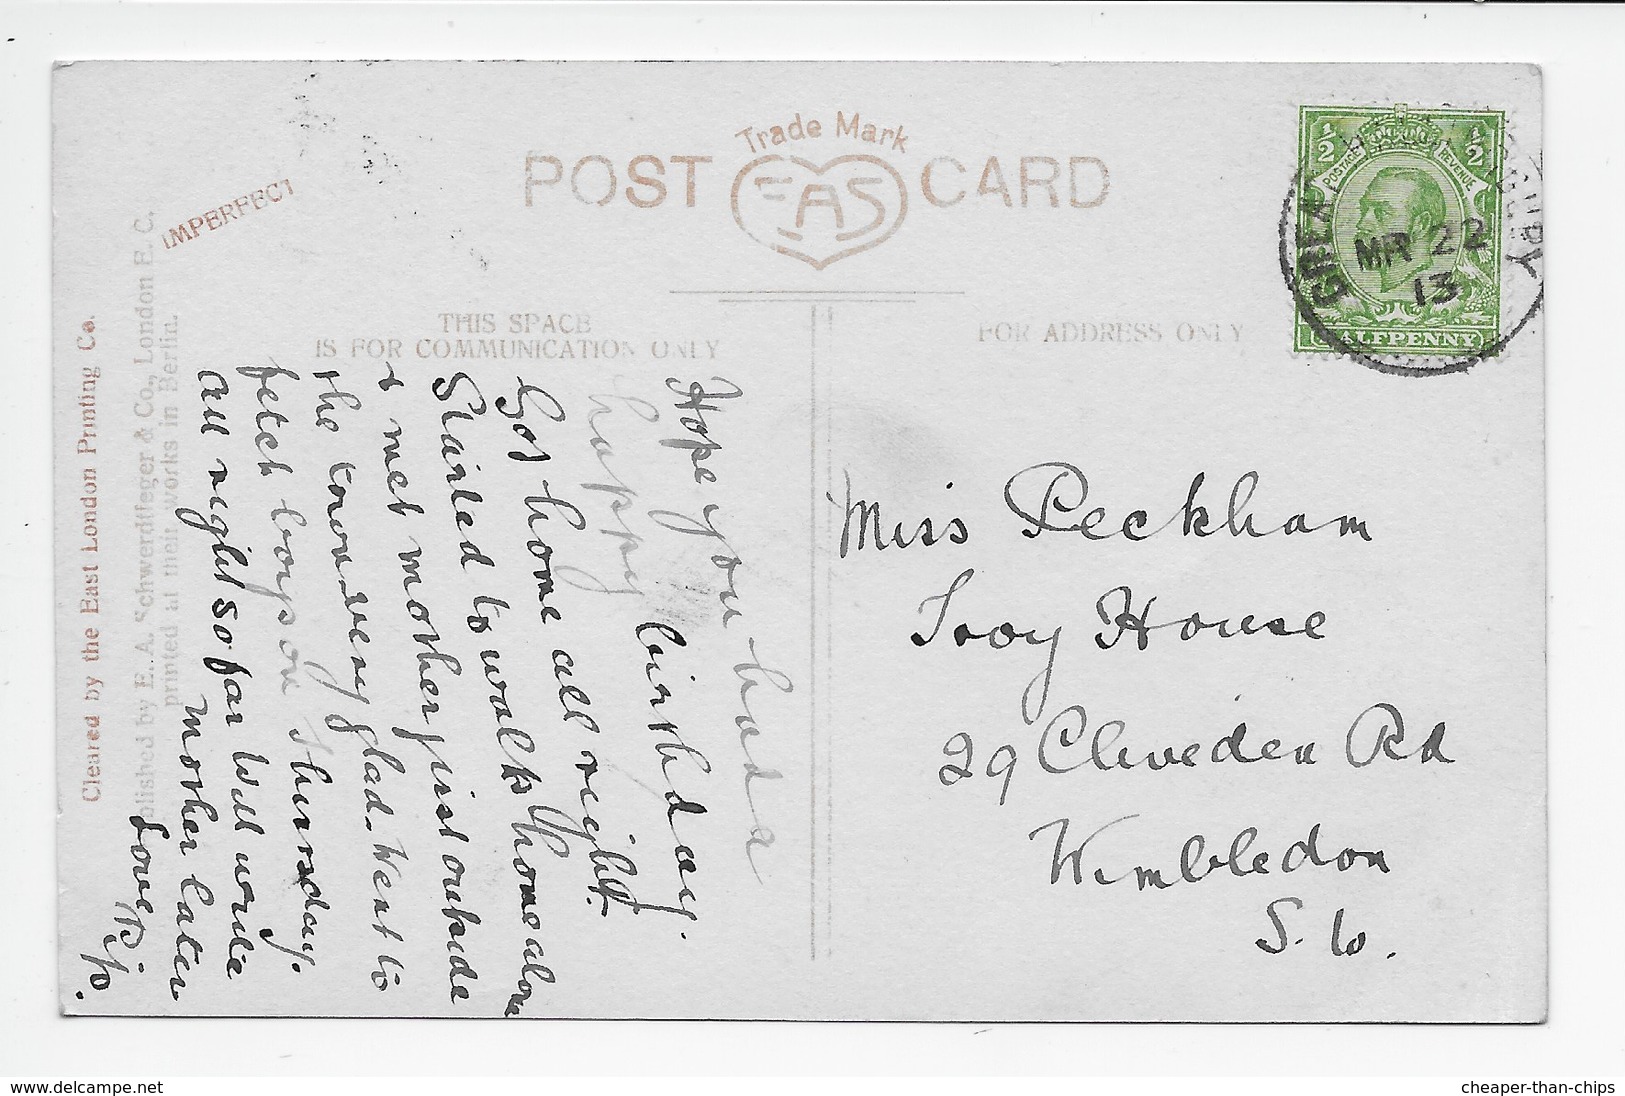 Trade Mark
POST EAS CARD
IMPERFECT
THIS SPACE
IS FOR COMMUNICATION ONLY
FOR ADDRESS ONLY
1/2 1/2
POSTAGE REVENUE
HALFPENNY
GREAT
MR 22
13
Hope you had a
happy birthday.
Got home all right.
Started to walk home alone
& met mother just outside
the town very glad. Went to
fetch boys on Thursday.
All right so far Will write
mother later
Love
Miss Peckham
Ivy House
29 Cliveden Rd
Wimbledon
S.W.
Cleared by the East London Printing Co.
blished by E. A. Schwerdtfeger & Co., London E. C.
printed at their works in Berlin.
www.delcampe.net
cheaper-than-chips